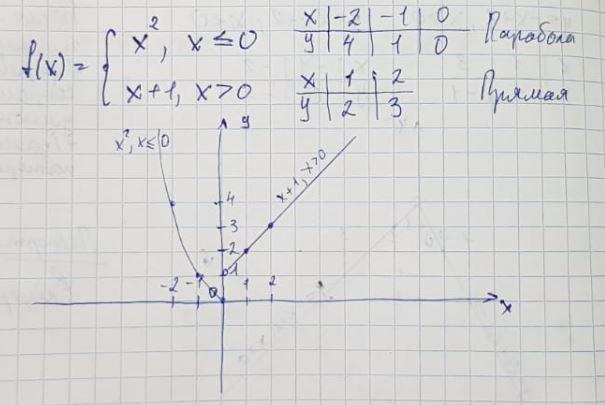 f(x) = { x², x ≤ 0
x+1, x > 0
x | -2 | -1 | 0
y | 4 | 1 | 0
Парабола
x | 1 | 2
y | 2 | 3
Прямая
x², x ≤ 0
y
x+1, x>0
4
3
2
1
-2 -1 0 1 2
x